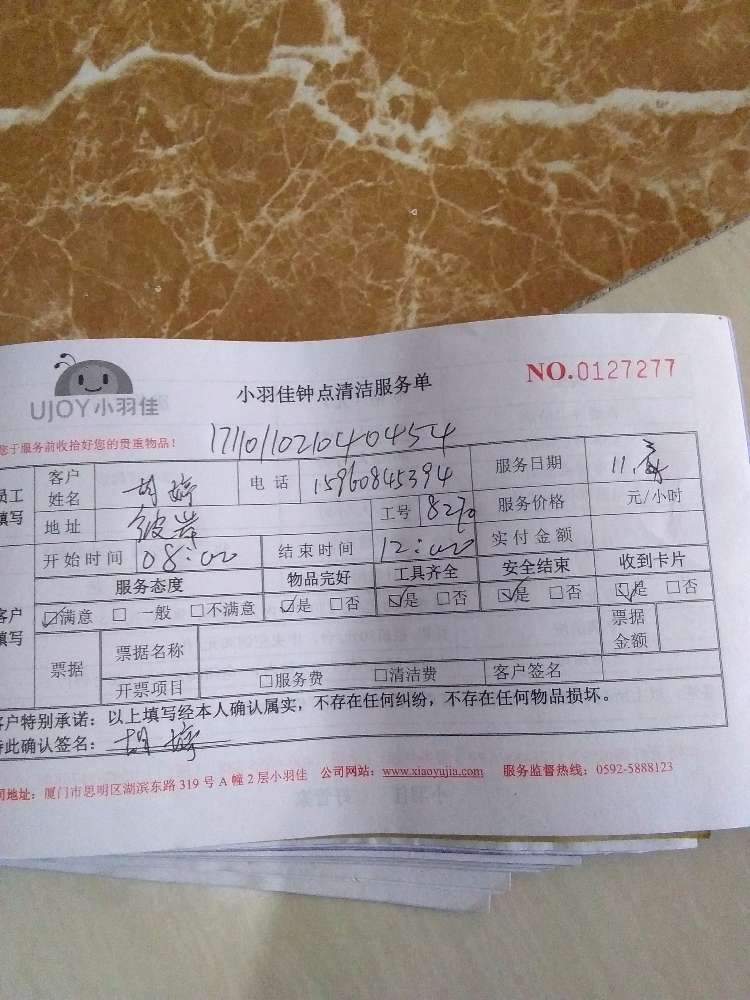 UJOY小羽佳
小羽佳钟点清洁服务单
NO.0127277
您于服务前收拾好您的贵重物品！
17101102104 0454
员工填写
客户姓名 胡婷 电话 15960845394 服务日期 11.
地址 工号 8270 服务价格 元/小时
开始时间 08:00 结束时间 12:00 实付金额
客户填写
服务态度 物品完好 工具齐全 安全结束 收到卡片
☑满意 □一般 □不满意 ☑是 □否 ☑是 □否 ☑是 □否 ☑是 □否
票据 票据名称 票据金额
开票项目 □服务费 □清洁费 客户签名
客户特别承诺：以上填写经本人确认属实，不存在任何纠纷，不存在任何物品损坏。
特此确认签名：胡婷
司地址：厦门市思明区湖滨东路319号A幢2层小羽佳 公司网站：www.xiaoyujia.com 服务监督热线：0592-5888123